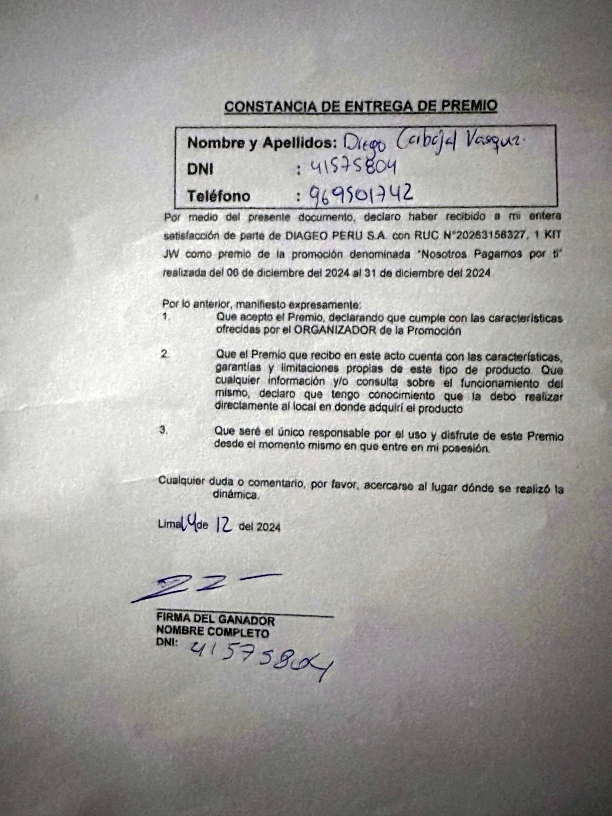 CONSTANCIA DE ENTREGA DE PREMIO
Nombre y Apellidos: Diego Carbajal Vasquz.
DNI : 41575804
Teléfono : 969501742
Por medio del presente documento, declaro haber recibido a mi entera
satisfacción de parte de DIAGEO PERU S.A. con RUC N°20263158327, 1 KIT
JW como premio de la promoción denominada "Nosotros Pagamos por ti"
realizada del 06 de diciembre del 2024 al 31 de diciembre del 2024
Por lo anterior, manifiesto expresamente:
1. Que acepto el Premio, declarando que cumple con las características
ofrecidas por el ORGANIZADOR de la Promoción
2. Que el Premio que recibo en este acto cuenta con las características,
garantías y limitaciones propias de este tipo de producto. Que
cualquier información y/o consulta sobre el funcionamiento del
mismo, declaro que tengo conocimiento que la debo realizar
directamente al local en donde adquirí el producto
3. Que seré el único responsable por el uso y disfrute de este Premio
desde el momento mismo en que entre en mi posesión.
Cualquier duda o comentario, por favor, acercarse al lugar dónde se realizó la
dinámica.
Lima 14 de 12 del 2024
FIRMA DEL GANADOR
NOMBRE COMPLETO
DNI: 41575804